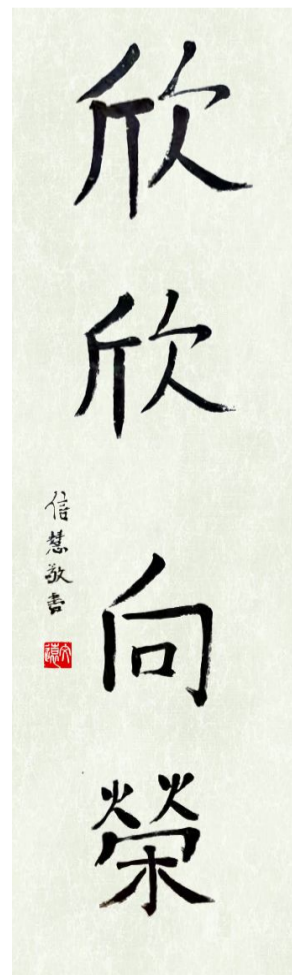 欣欣向榮
信慧敬書